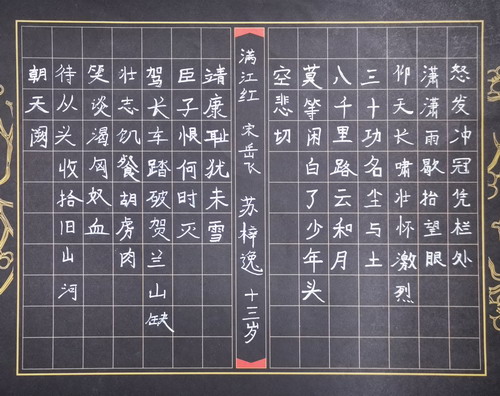 怒发冲冠凭栏处
潇潇雨歇抬望眼
仰天长啸壮怀激烈
三十功名尘与土
八千里路云和月
莫等闲白了少年头
空悲切
满江红 宋岳飞 苏梓逸 十三岁
靖康耻犹未雪
臣子恨何时灭
驾长车踏破贺兰山缺
壮志饥餐胡虏肉
笑谈渴匈奴血
待从头收拾旧山河
朝天阙